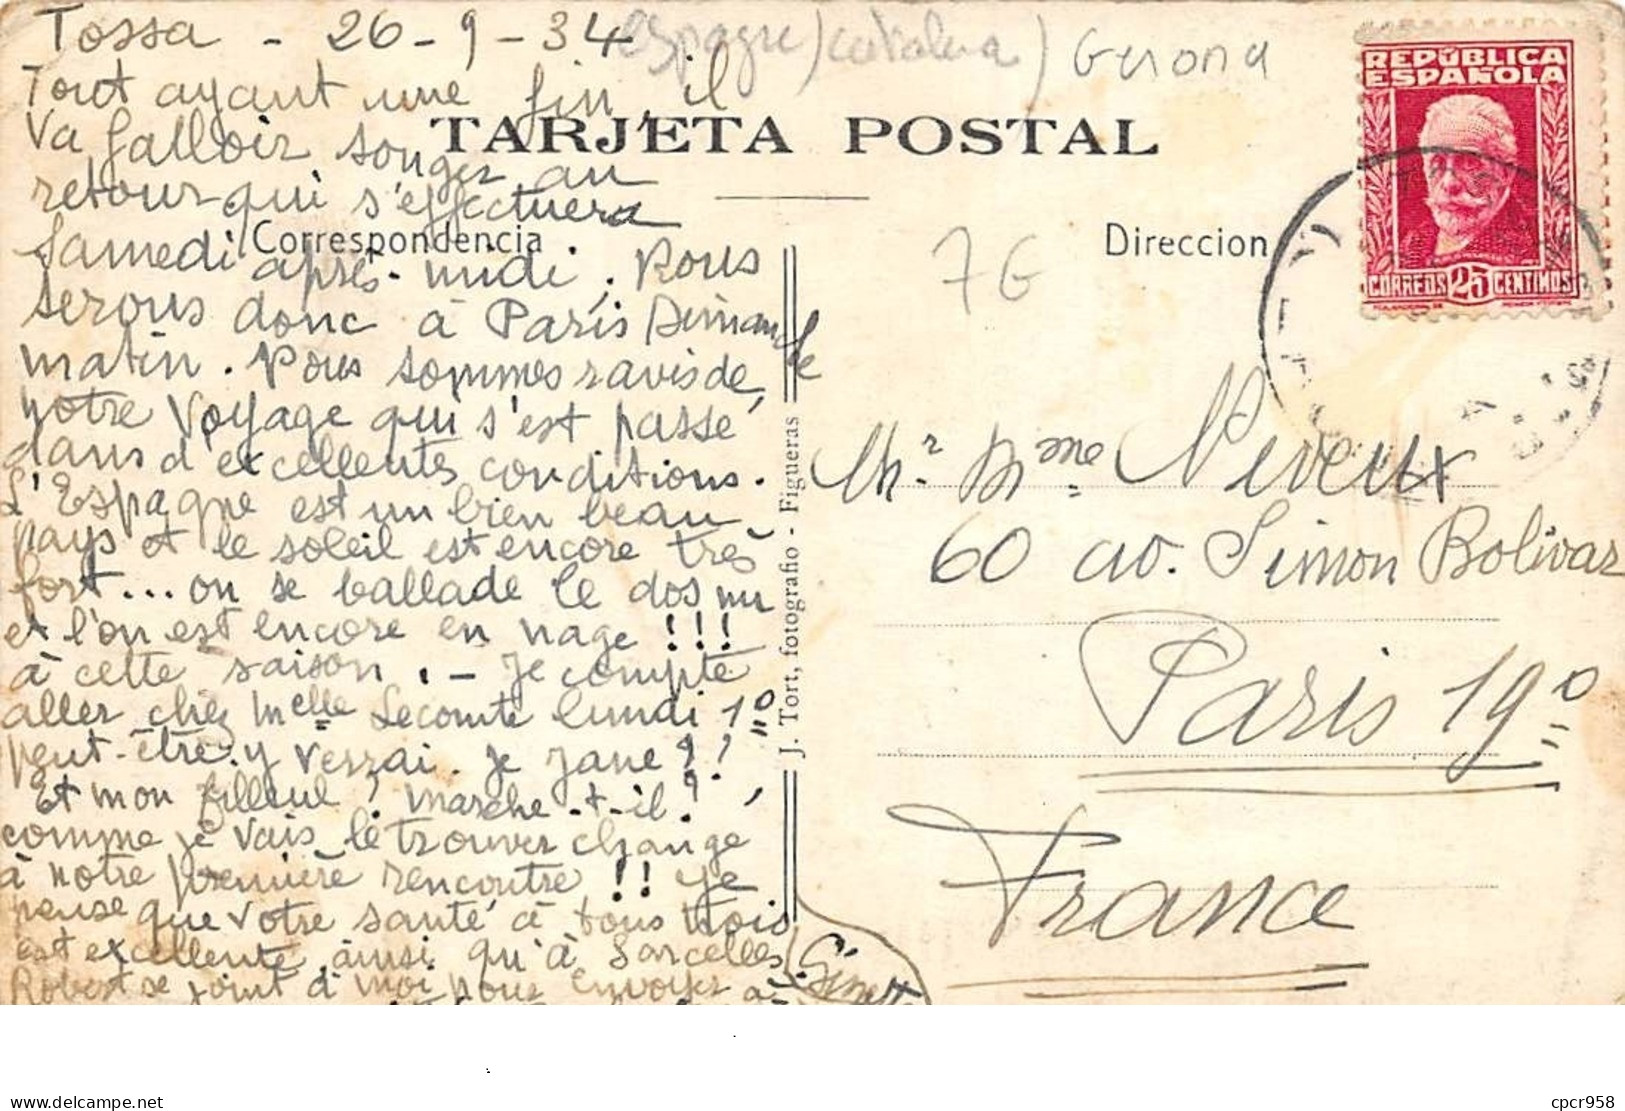 Tossa - 26-9-34
espagne) catalana) Gerona
Tout ayant une fin, il
va falloir songer au
retour qui s'effectuera
Samedi après-midi. Nous
serons donc à Paris Dimanche
matin. Nous sommes ravis de
notre voyage qui s'est passé
dans d'excellentes conditions.
L'Espagne est un bien beau
pays et le soleil est encore très
fort... on se ballade le dos nu
et l'on est encore en nage !!!
à cette saison. - Je compte
aller chez Melle Lecomte lundi 1º
peut-être y verrai-je Jane ??
Et mon filleul, marche-t-il?,
comme je vais le trouver changé
à notre première rencontre !! Je
pense que votre santé à tous trois
est excellente ainsi qu'à Sarcelles.
Robert se joint à moi pour envoyer à
Ginette
TARJETA POSTAL
Correspondencia
J. Tort, fotografio - Figueras
7G
Direccion
REPÚBLICA
ESPAÑOLA
CORREOS 25 CENTIMOS
Mr. Mme Niveux
60 av. Simon Bolivar
Paris 19º
France
www.delcampe.net
cpcr958